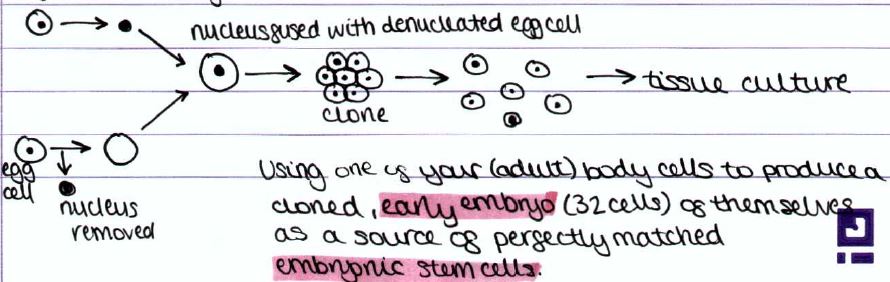 nucleus fused with denucleated egg cell
clone
tissue culture
egg
cell
nucleus
removed
Using one of your (adult) body cells to produce a
cloned, early embryo (32 cells) of themselves
as a source of perfectly matched
embryonic stem cells.